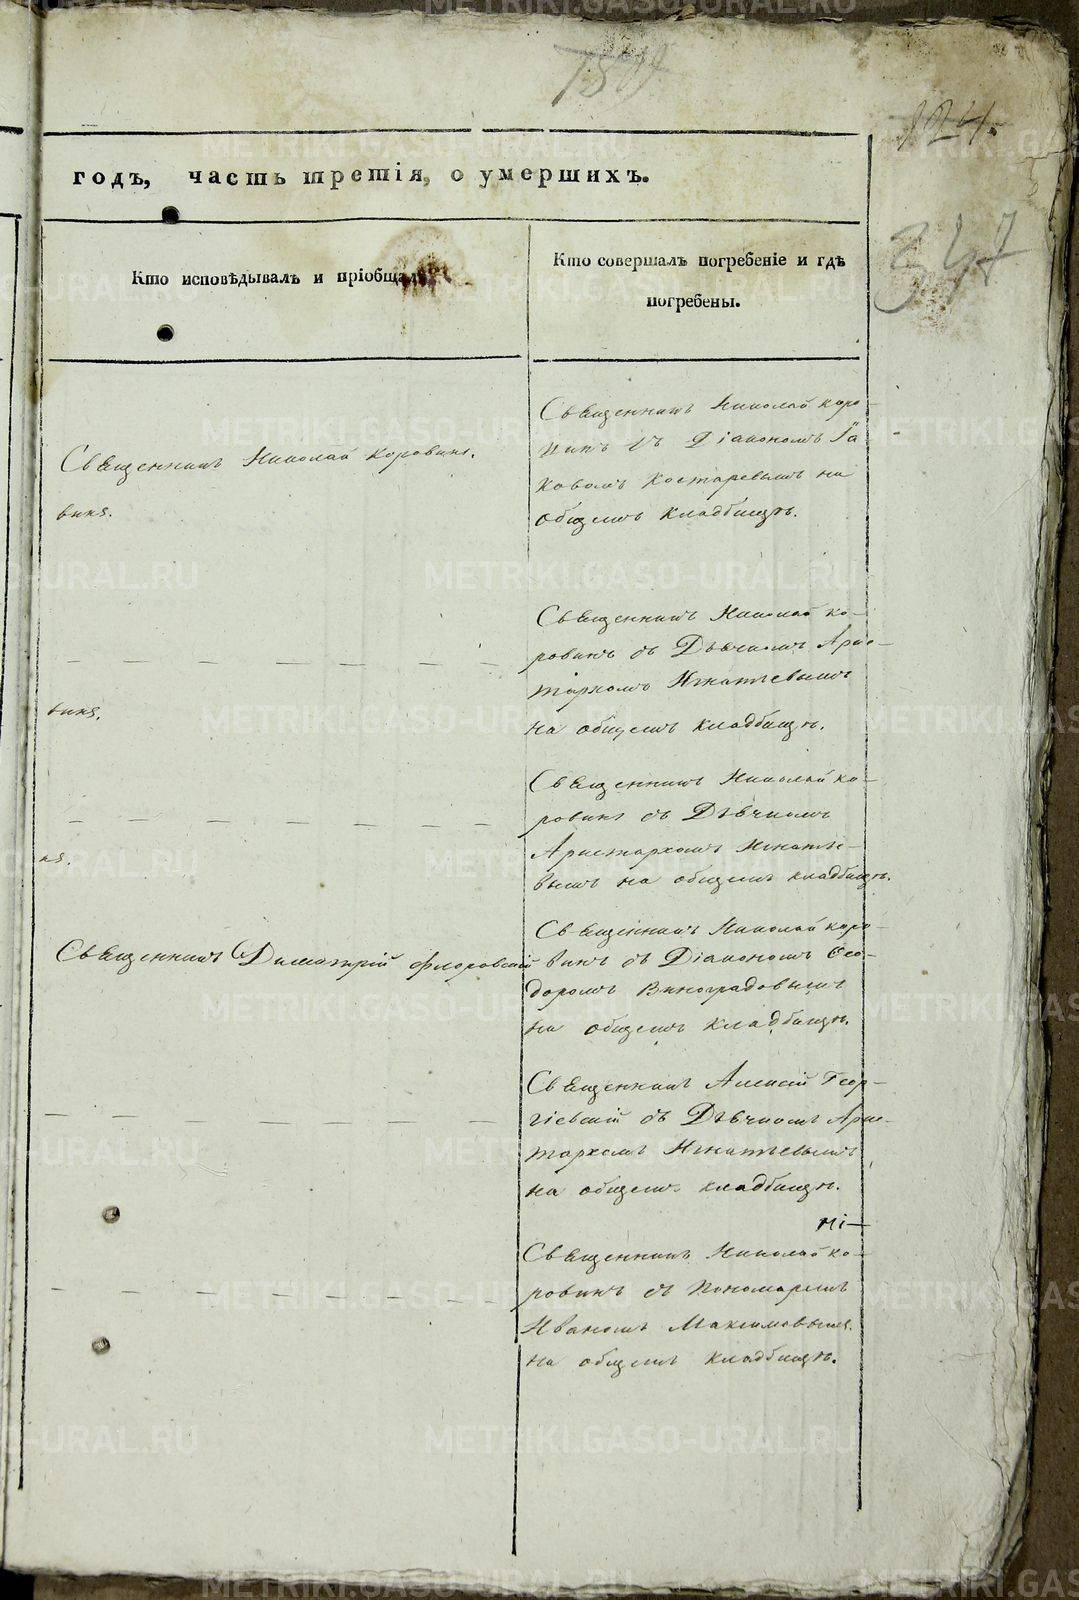 124.
347
годъ, часть третія, о умершихъ.
Кто исповѣдывалъ и пріобщалъ
Кто совершалъ погребеніе и гдѣ
погребены.
Священникъ Николай Коровинъ.
вина.
Священникъ Николай Коро-
винъ съ Діакономъ Іа
ковомъ Костаревымъ на
общемъ кладбищѣ.
Священникъ Николай Ко-
ровинъ съ Дьячкомъ Арис-
тархомъ Игнатьевымъ
на общемъ кладбищѣ.
вина.
Священникъ Николай Ко-
ровинъ съ Дьячкомъ
Аристархомъ Игнатье-
вымъ на общемъ кладбищѣ.
на.
Священникъ Димитрій Флоровскій
Священникъ Николай Коро-
винъ съ Діакономъ Ѳео-
доромъ Виноградовымъ
на общемъ кладбищѣ.
Священникъ Алексій Геор-
гіевскій съ Дьячкомъ Арис-
тархомъ Игнатьевымъ
на общемъ кладбищѣ.
Священникъ Николай Ко-
ровинъ съ Пономаремъ
Иваномъ Максимовымъ
на общемъ кладбищѣ.
METRIKI.GASO-URAL.RU